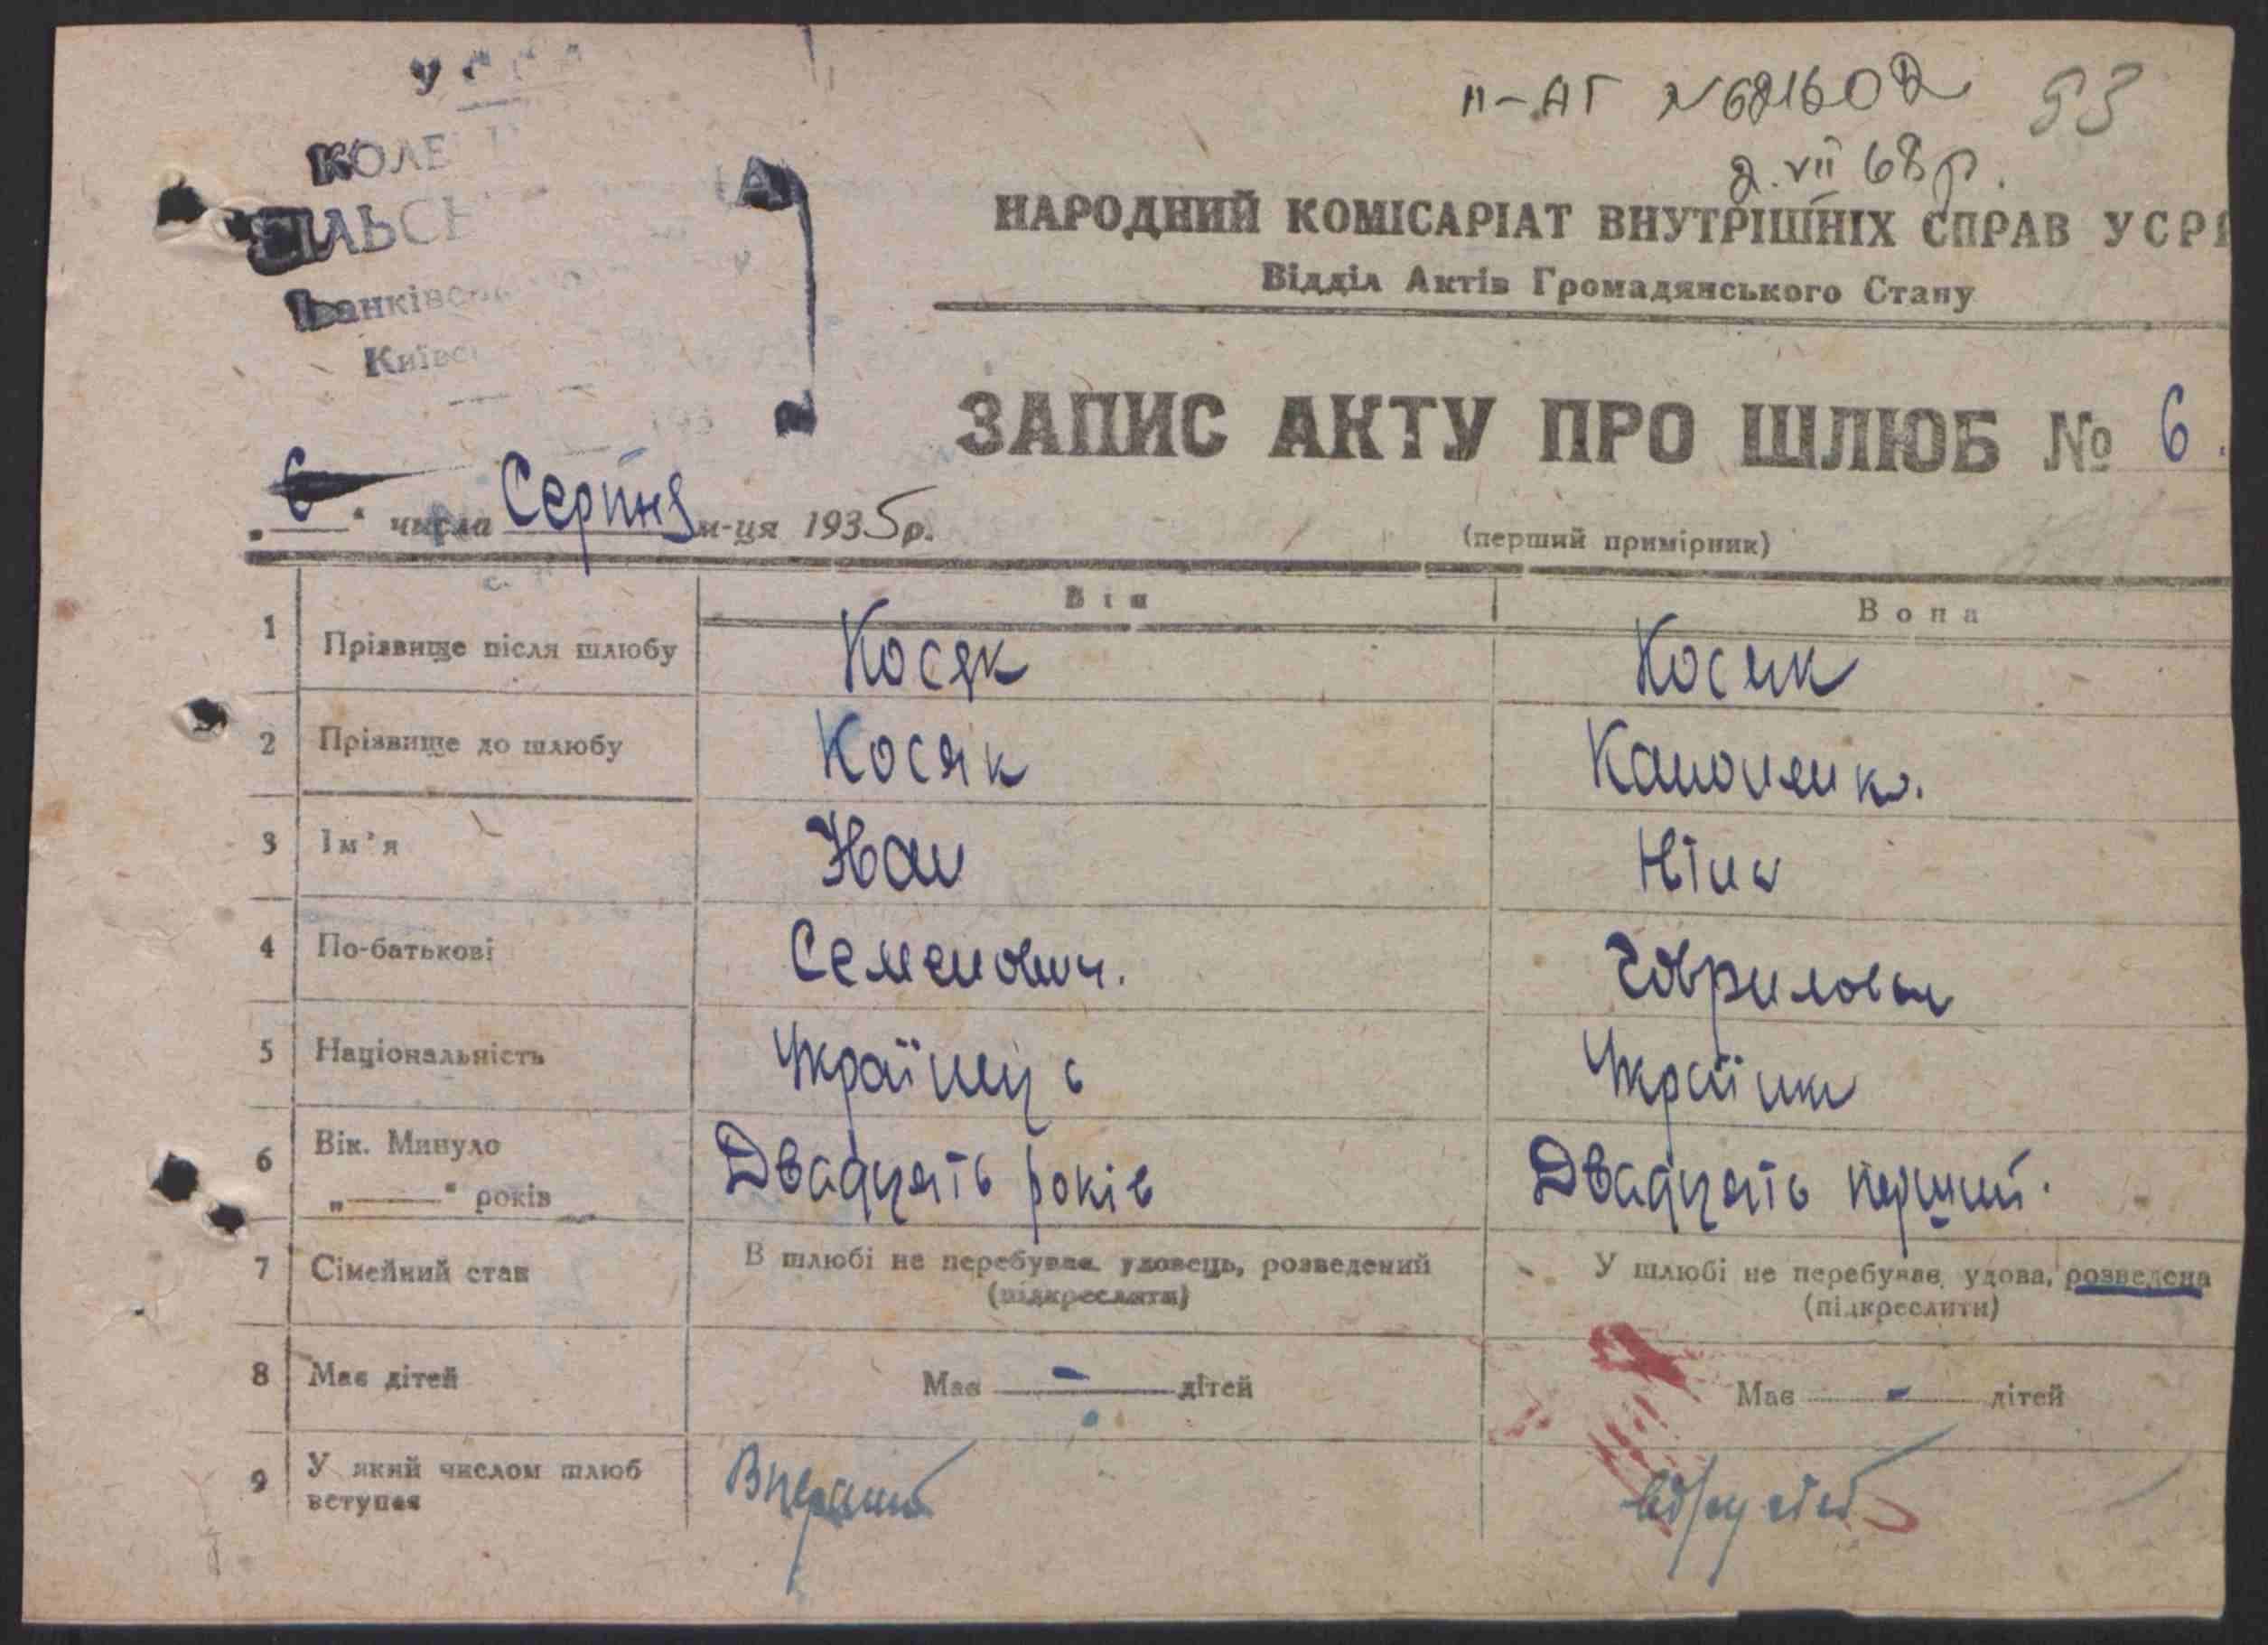 КОЛЕ
СІЛЬСЬ
Іванківс
Київс
ІІ-АГ №621602 53
2.VII 68 р.
НАРОДНИЙ КОМІСАРІАТ ВНУТРІШНІХ СПРАВ УСРР
Відділ Актів Громадянського Стану
ЗАПИС АКТУ ПРО ШЛЮБ № 6.
„6“ числа Серпня м-ця 1935 р.
(перший примірник)
Він Вона
1 Прізвище після шлюбу Косяк Косяк
2 Прізвище до шлюбу Косяк
3 Ім'я Іван Ніна
4 По-батькові Семенович. Гавриловна
5 Національність Українець Українка
6 Вік. Минуло „——“ років Двадцять років Двадцять перший.
7 Сімейний стан В шлюбі не перебував, удовець, розведений (підкреслити) У шлюбі не перебував, удова, розведена (підкреслити)
8 Має дітей Має — дітей Має — дітей
9 У який числом шлюб вступає Вперший